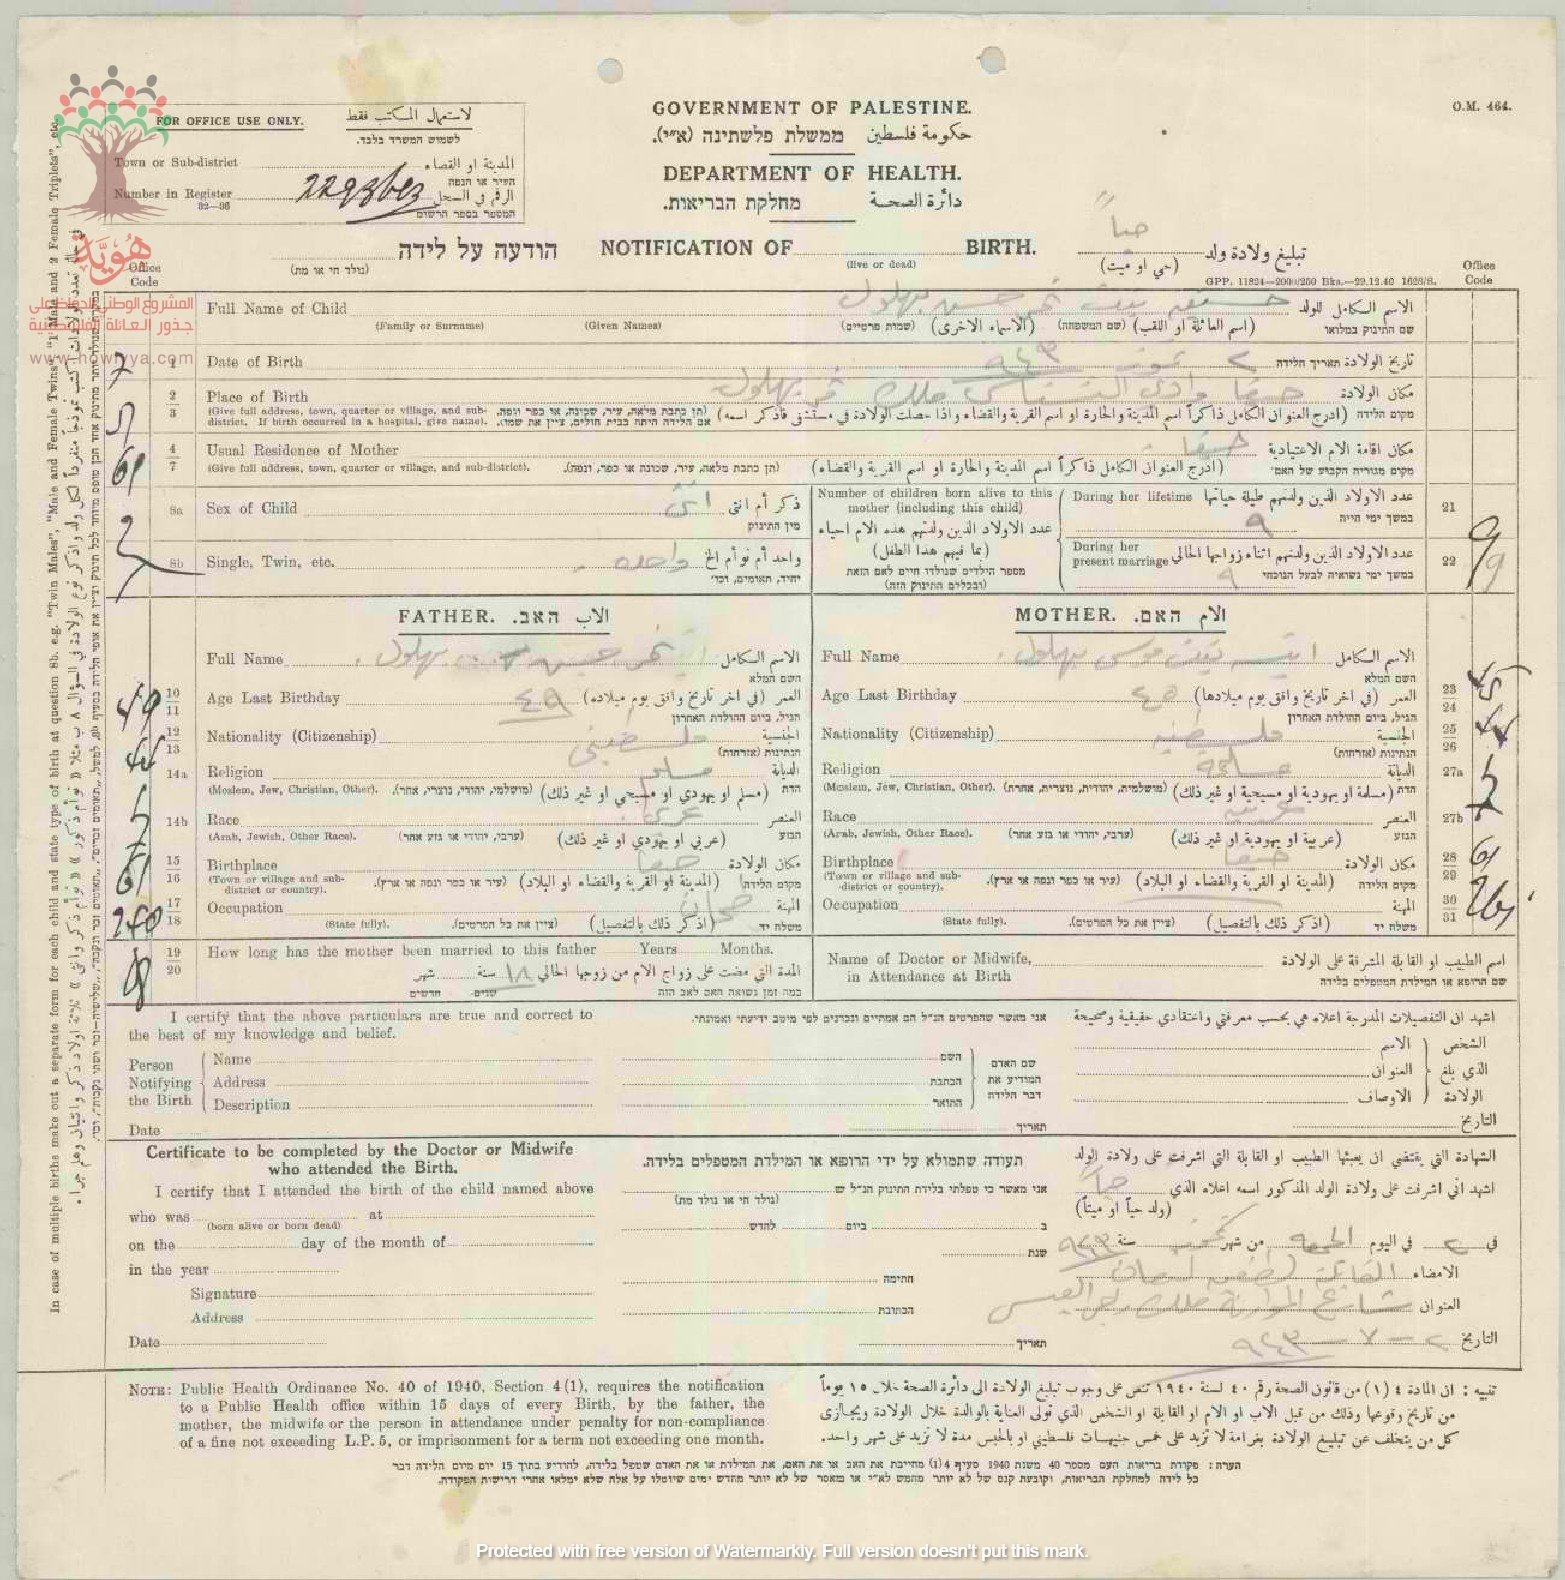 GOVERNMENT OF PALESTINE.
O.M. 464.
حكومة فلسطين ממשלת פלשתינה (א״י).
DEPARTMENT OF HEALTH.
دائرة الصحة מחלקת הבריאות.
FOR OFFICE USE ONLY. لاستعمال المكتب فقط
לשמוש המשרד בלבד.
Town or Sub-district المدينة او القضاء
העיר או הנפה
Number in Register الرقم في السجل
32—36 המספר בספר הרשום
هوية
المشروع الوطني للحفاظ على
جذور العائلة الفلسطينية
www.howiyya.com
הודעה על לידה NOTIFICATION OF BIRTH. تبليغ ولادة ولد حياً
(נולד חי או מת) (live or dead) (حي او ميت)
GPP. 11824—2000/250 Bks.—29.12.40 1628/S.
Office Code Office Code
Full Name of Child الاسم الكامل للولد
(Family or Surname) (Given Names) (שמות פרטיים) (الاسماء الاخرى) (שם המשפחה) (اسم العائلة او اللقب) שם התינוק במלואו
1 Date of Birth تاريخ الولادة תאריך הלידה
٢ تموز ٩٤٣
2 3 Place of Birth مكان الولادة
حيفا وادي النسناس ملك نمر بهلول
(Give full address, town, quarter or village, and sub-district. If birth occurred in a hospital, give name). (תן כתבת מלאה, עיר, שכונה, או כפר ונפה. אם הלידה היתה בבית חולים, ציין את שמו). (ادرج العنوان الكامل ذاكراً اسم المدينة والحارة او اسم القرية والقضاء واذا حصلت الولادة في مستشفى فاذكر اسمه) מקום הלידה
4 7 Usual Residence of Mother مكان اقامة الام الاعتيادية
حيفا
(Give full address, town, quarter or village, and sub-district). (תן כתבת מלאה, עיר, שכונה או כפר, ונפה). (ادرج العنوان الكامل ذاكراً اسم المدينة والحارة او اسم القرية والقضاء) מקום מגוריה הקבוע של האם.
8a Sex of Child انثى ذكر أم انثى
מין התינוק
8b Single, Twin, etc. واحده واحد أم توأم الخ
יחיד, תאומים, וכו׳
Number of children born alive to this mother (including this child)
عدد الاولاد الذين ولدتهم هذه الام احياء
(بما فيهم هذا الطفل)
מספר הילדים שנולדו חיים לאם הזאת
(ובכללם התינוק הזה)
During her lifetime عدد الاولاد الذين ولدتهم طيلة حياتها 21
במשך ימי חייה
٩
During her present marriage عدد الاولاد الذين ولدتهم اثناء زواجها الحالي 22
במשך ימי נשואיה לבעל הנוכחי
٩
FATHER. האב. الاب
Full Name الاسم الكامل
השם המלא
10 11 Age Last Birthday ٤٩ العمر (في اخر تاريخ وافق يوم ميلاده)
הגיל, ביום ההולדת האחרון
12 13 Nationality (Citizenship) فلسطيني الجنسية
הנתינות (אזרחות)
14a Religion مسلم الديانة
(Moslem, Jew, Christian, Other). (מושלמי, יהודי, נוצרי, אחר). (مسلم او يهودي او مسيحي او غير ذلك) הדת
14b Race عربي العنصر
(Arab, Jewish, Other Race). (ערבי, יהודי או גזע אחר) (عربي او يهودي او غير ذلك) הגזע
15 16 Birthplace حيفا مكان الولادة
(Town or village and sub-district or country). (עיר או כפר ונפה או ארץ). (المدينة او القرية والقضاء او البلاد) מקום הלידה
17 18 Occupation المهنة
(State fully). (ציין את כל הפרטים). (اذكر ذلك بالتفصيل) משלח יד
19 20 How long has the mother been married to this father Years Months.
المدة التي مضت على زواج الام من زوجها الحالي ١٨ سنة شهر
כמה זמן נשואה האם לאב הזה שנים חדשים
MOTHER. האם. الام
Full Name انيسه بنت موسى بهلول الاسم الكامل
השם המלא
Age Last Birthday العمر (في اخر تاريخ وافق يوم ميلادها) 23 24
הגיל, ביום ההולדת האחרון
Nationality (Citizenship) فلسطينيه الجنسية 25 26
הנתינות (אזרחות)
Religion مسلمة الديانة 27a
(Moslem, Jew, Christian, Other). (מושלמית, יהודית, נוצרית, אחרת). (مسلمة او يهودية او مسيحية او غير ذلك) הדת
Race عربيه العنصر 27b
(Arab, Jewish, Other Race). (ערבי, יהודי או גזע אחר) (عربية او يهودية او غير ذلك) הגזע
Birthplace حيفا مكان الولادة 28 29
(Town or village and sub-district or country). (עיר או כפר ונפה או ארץ). (المدينة او القرية والقضاء او البلاد) מקום הלידה
Occupation المهنة 30 31
(State fully). (ציין את כל הפרטים). (اذكر ذلك بالتفصيل) משלח יד
Name of Doctor or Midwife, in Attendance at Birth اسم الطبيب او القابلة المشرفة على الولادة
שם הרופא או המילדת המטפלים בלידה
I certify that the above particulars are true and correct to the best of my knowledge and belief.
אני מאשר שהפרטים הנ״ל הם אמתיים ונכונים לפי מיטב ידיעתי ואמונתי.
اشهد ان التفصيلات المدرجة اعلاه هي بحسب معرفتي واعتقادي حقيقية وصحيحة
Person Notifying the Birth
Name השם الاسم
Address הכתבת العنوان
Description התואר الاوصاف
שם האדם המודיע את דבר הלידה
الشخص الذي بلغ الولادة
Date תאריך التاريخ
Certificate to be completed by the Doctor or Midwife who attended the Birth.
תעודה שתמולא על ידי הרופא או המילדת המטפלים בלידה.
الشهادة التي يقتضي ان يعبئها الطبيب او القابلة التي اشرفت على ولادة الولد
I certify that I attended the birth of the child named above
who was at
(born alive or born dead)
on the day of the month of
in the year
Signature
Address
Date
אני מאשר כי טפלתי בלידת התינוק הנ״ל ש
(נולד חי או נולד מת)
ב ביום לחדש
שנת
חתימה
הכתובת
תאריך
اشهد اني اشرفت على ولادة الولد المذكور اسمه اعلاه الذي حياً
(ولد حياً او ميتاً)
في ٢ في اليوم الجمعه من شهر تموز سنة ٩٤٣
الامضاء
العنوان
التاريخ ٢ - ٧ - ٩٤٣
NOTE: Public Health Ordinance No. 40 of 1940, Section 4(1), requires the notification
to a Public Health office within 15 days of every Birth, by the father, the
mother, the midwife or the person in attendance under penalty for non-compliance
of a fine not exceeding L.P. 5, or imprisonment for a term not exceeding one month.
تنبيه : ان المادة ٤ (١) من قانون الصحة رقم ٤٠ لسنة ١٩٤٠ تنص على وجوب تبليغ الولادة الى دائرة الصحة خلال ١٥ يوماً
من تاريخ وقوعها وذلك من قبل الاب او الام او القابلة او الشخص الذي تولى العناية بالوالدة خلال الولادة ويجازى
كل من يتخلف عن تبليغ الولادة بغرامة لا تزيد على خمس جنيهات فلسطيني او بالحبس مدة لا تزيد على شهر واحد.
הערה: פקודת בריאות העם מספר 40 משנת 1940 סעיף 4(1) מחייבת את האב או את האם, את המילדת או את האדם שטפל בלידה, להודיע בתוך 15 יום מיום הלידה דבר
כל לידה למחלקת הבריאות, וקובעת קנס של לא יותר מחמש לא״י או מאסר של לא יותר מחדש ימים
In case of multiple births make out a separate form for each child and state type of birth at question 8b. e.g. "Twin Males", "Male and Female Twins", "1 Male and 2 Female Triplets", etc.
Protected with free version of Watermarkly. Full version doesn't put this mark.